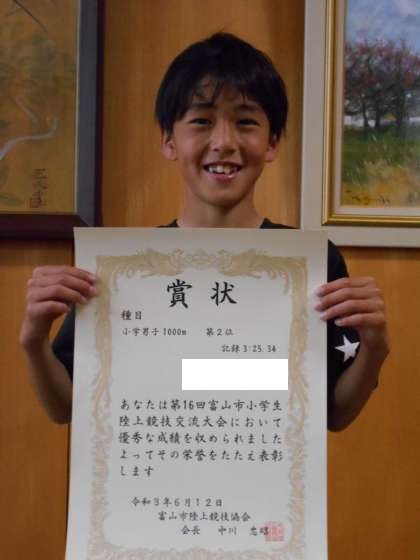 賞状
種目
小学男子1000m 第2位
記録3:25.34
あなたは第16回富山市小学生
陸上競技交流大会において
優秀な成績を収められました
よってその栄誉をたたえ表彰
します
令和3年6月12日
富山市陸上競技協会
会長 中川 忠昭